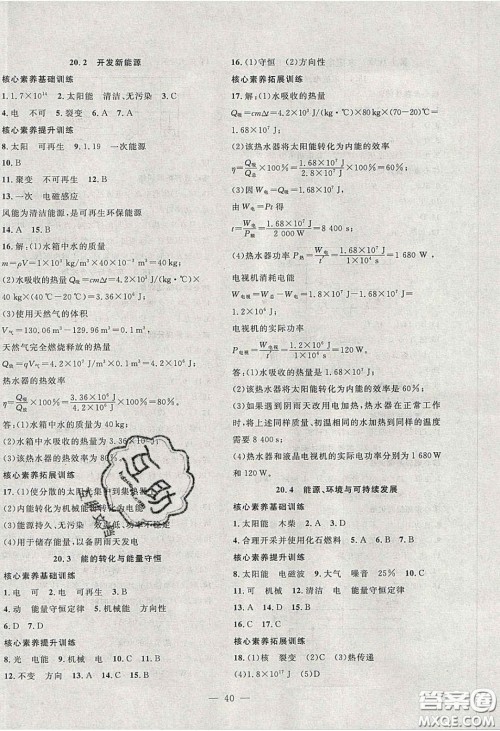 20.2 开发新能源
核心素养基础训练
1.1.7×10¹⁴ 2.太阳能 清洁、无污染 3.C
4.电 不可 5.裂变 6.D 7.C
核心素养提升训练
8.太阳 可再生 9.1.19 一次能源
10.B
11.聚变 不可再生 12.B
13.一次 电磁感应
风能为清洁能源,是可再生环保能源
14.A 15.A
16.解:(1)水箱中水的质量
m=ρV=1×10³ kg/m³×40×10⁻³ m³=40 kg
(2)水吸收的热量 Q吸=cmΔt=4.2×10³ J/(kg·℃)×
40 kg×(70℃-50℃)=3.36×10⁶ J
(3)使用天然气的体积
V气=130.06 m³-130.04 m³=0.1 m³
天然气完全燃烧释放的热量
Q放=V气q=0.1 m³×4.2×10⁷ J/m³=4.2×10⁶ J
热水器的效率
η=Q吸/Q放×100%=3.36×10⁶ J/4.2×10⁶ J×100%=80%
(1)水箱中水的质量为40 kg;
(2)水箱中水吸收的热量为3.36×10⁶ J;
(3)热水器的效率为80%.
核心素养拓展训练
17.(1)使分散的太阳光集中到集热器上
(2)内能转化为机械能转化为电能
(3)能源持久、无污染、不稳定、功率不稳定
(4)用于储存能量,以备阴雨天发电
20.3 能的转化与能量守恒
核心素养基础训练
1.电 可 2.电 可 3.B
4.动 能量守恒定律 5.机械能 方向性
6.D 7.D
核心素养提升训练
8.光 电能 9.机械 电 10.A 11.C
12.不变 方向 13.C 14.B 15.B
16.(1)守恒 (2)方向性
核心素养拓展训练
17.解:(1)水吸收的热量
Q吸=cmΔt=4.2×10³ J/(kg·℃)×80 kg×(70℃-20℃)=1.68×10⁷ J
(2)该热水器将太阳能转化为内能的效率
η=Q吸/Q总×100%=1.68×10⁷ J/2.8×10⁷ J×100%=60%
(3)因W电=Q吸=1.68×10⁷ J
因为W电=Pt得
t=W电/P=1.68×10⁷ J/2 000 W=8 400 s;
(4)热水器功率 P=W电/t=1.68×10⁷ J/8 400 s=1 680 W,
电视机消耗电能
电视机的实际功率
(1)水吸收的热量为1.68×10⁷ J;
(2)该热水器将太阳能转化为内能的效率为60%;
(3)如果遇到阴雨天改用电加热,热水器在正常工作
时,将上述同样质量、初温的水加热到相同的温度需要
8 400 s;
(4)热水器和液晶电视机的实际功率为120 W.
20.4 能源、环境与可持续发展
核心素养基础训练
1.太阳能 木柴 2.C 3.A
4.合理开采并使用化石燃料 5.C 6.B 7.C
核心素养提升训练
8.太阳能 电磁波 9.大气 噪音 25%
10.(1)C (2)能量守恒定律
11.B 12.C 13.D 14.C 15.D 16.A
17.C
核心素养拓展训练
18.(1)核 裂变 (2)B (3)热传递
(4)1.8×10¹³ J
— 40 —
互助
答案圈
MXQE.COM